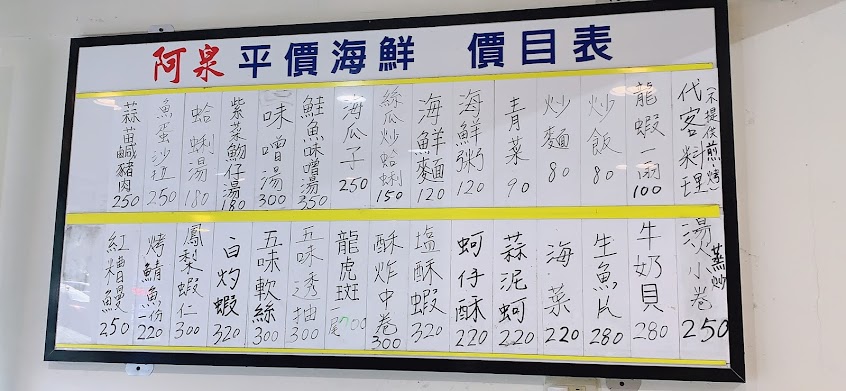 阿泉 平價海鮮 價目表
代客料理(不提供煎、烤)
龍蝦一扇100
炒飯80
炒麵80
青菜90
海鮮粥120
海鮮麵120
絲瓜炒蛤蜊150
海瓜子250
鮭魚味噌湯350
味噌湯300
紫菜魩仔湯180
蛤蜊湯180
魚蛋沙拉250
蒜苗鹹豬肉250
湯小卷蒸炒250
牛奶貝280
生魚片280
海菜220
蒜泥蚵220
蚵仔酥220
塩酥蝦320
酥炸中卷300
龍虎斑一尾700
五味透抽300
五味軟絲300
白灼蝦320
鳳梨蝦仁300
烤鯖魚一份220
紅糟鰻250